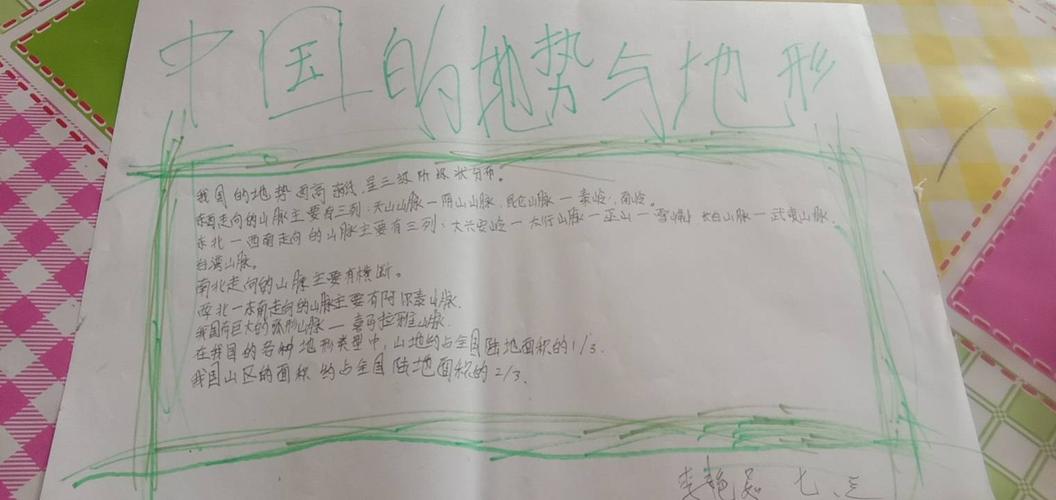 中国的地势与地形
我国的地势西高东低,呈三级阶梯状分布。
东西走向的山脉主要有三列:天山山脉一阴山山脉、昆仑山脉一秦岭、南岭。
东北一西南走向的山脉主要有三列:大兴安岭一太行山脉一巫山一雪峰山 长白山脉一武夷山脉、
台湾山脉。
南北走向的山脉主要有横断。
西北一东南走向的山脉主要有阿尔泰山脉.
我国有巨大的弧形山脉一喜马拉雅山脉.
在我国的各种地形类型中,山地约占全国陆地面积的1/3.
我国山区的面积约占全国陆地面积的2/3.
李艳 七、三